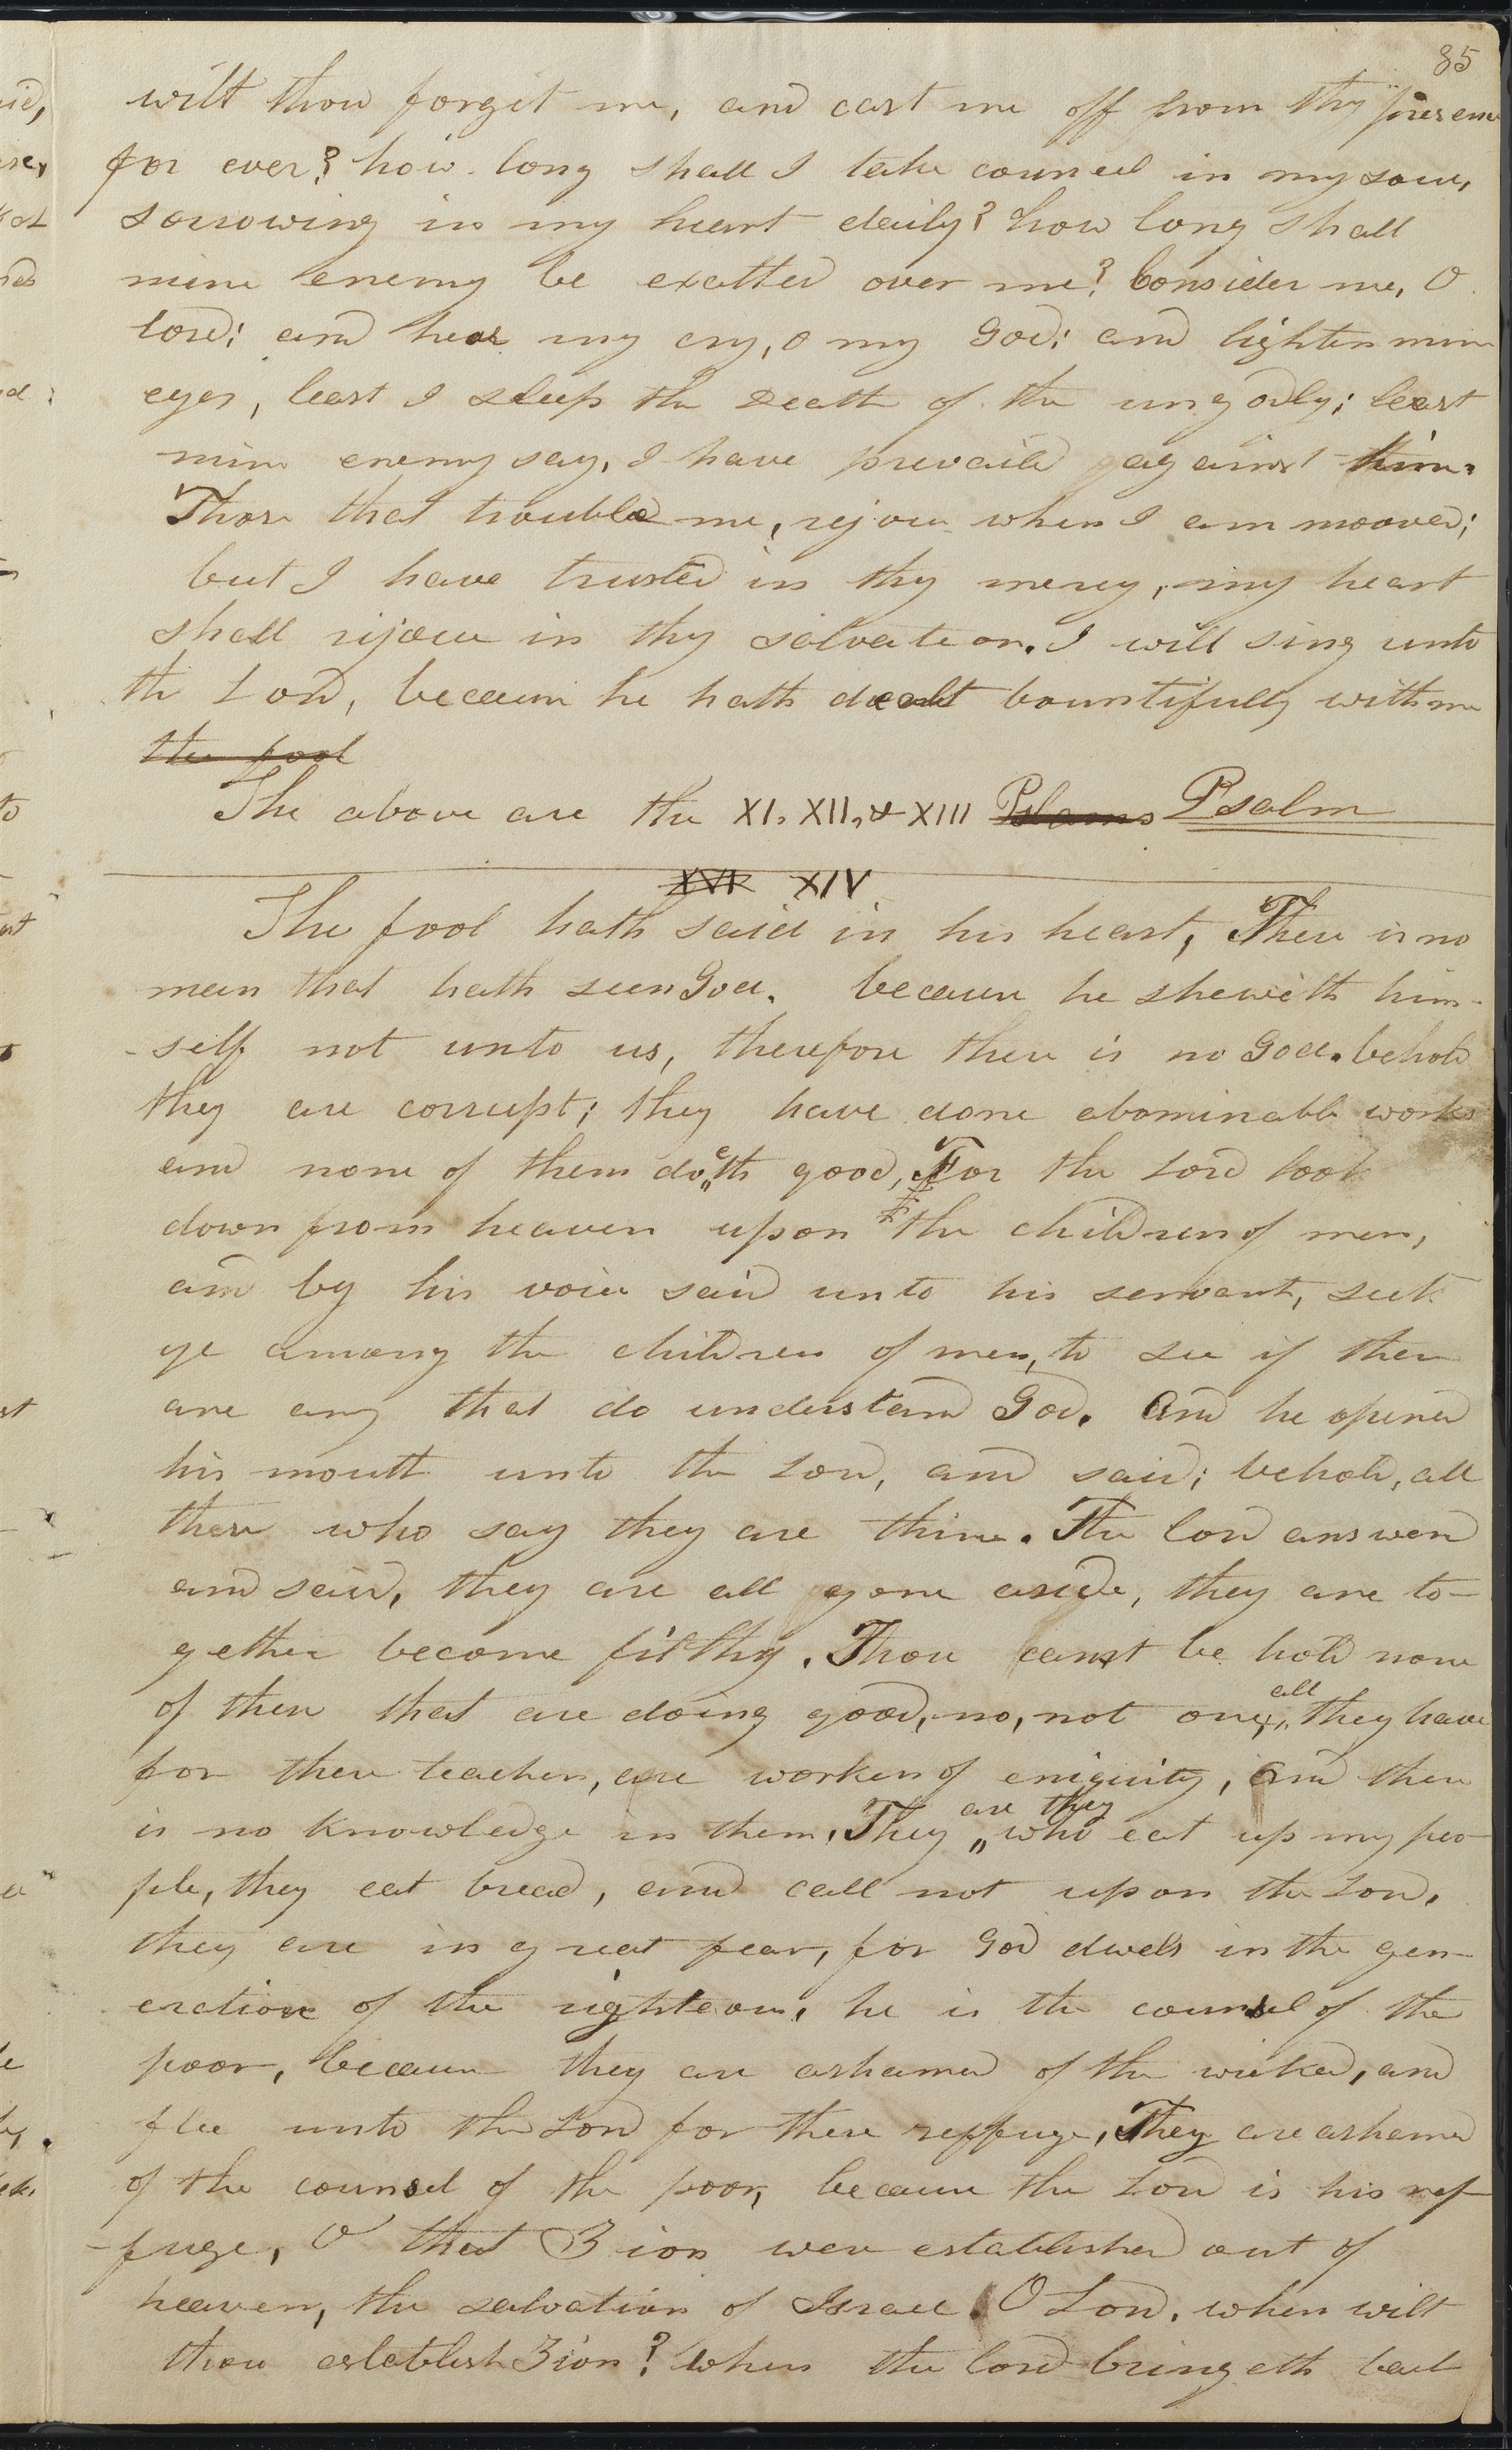 85
wilt thou forget me, and cast me off from thy presence
for ever? how long shall I take councel in my soul,
sorrowing in my heart daily? how long shall
mine enemy be exalted over me? Consider me, O
lord; and hear my cry, O my God; and lighten mine
eyes, least I sleep the death of the ungodly; least
mine enemy say, I have prevaild against him.
Those that trouble me, rejoice when I am mooved;
but I have trusted in thy mercy, my heart
shall rijoice in thy salvation. I will sing unto
the Lord, because he hath dealt bountifully with me
the fool
The above are the XI, XII, & XIII Pslams Psalm
XVI XIV
The fool hath said in his heart, There is no
man that hath seen God. because he sheweth him-
-self not unto us, therefore there is no God. behold
they are corrupt; they have done abominable works
and none of them doeth good, For the Lord look
down from heaven upon the children of men,
and by his voice said unto his servant, seek
ye among the children of men, to see if there
are any that do understand God. And he opened
his mouth unto the Lord, and said; behold, all
these who say they are thine. The lord answerd
and said, they are all gone aside, they are to-
gether become filthy. Thou canst be hold none
of them that are doing good, no, not one, all they have
for there teachers, are workers of eniquity, and there
is no knowledge in them, They are they who eat up my peo-
ple, they eat bread, and call not upon the Lord,
they are in great fear, for God dwels in the gen-
eration of the righteous, he is the counsel of the
poor, because they are ashamed of the wicked, and
flee unto the Lord for there reffuge, They are ashamed
of the counsel of the poor, because the Lord is his ref-
-fuge, O that Zion were established out of
heaven, the salvation of Israel. O Lord, when wilt
thou establish Zion? when the lord bringeth back